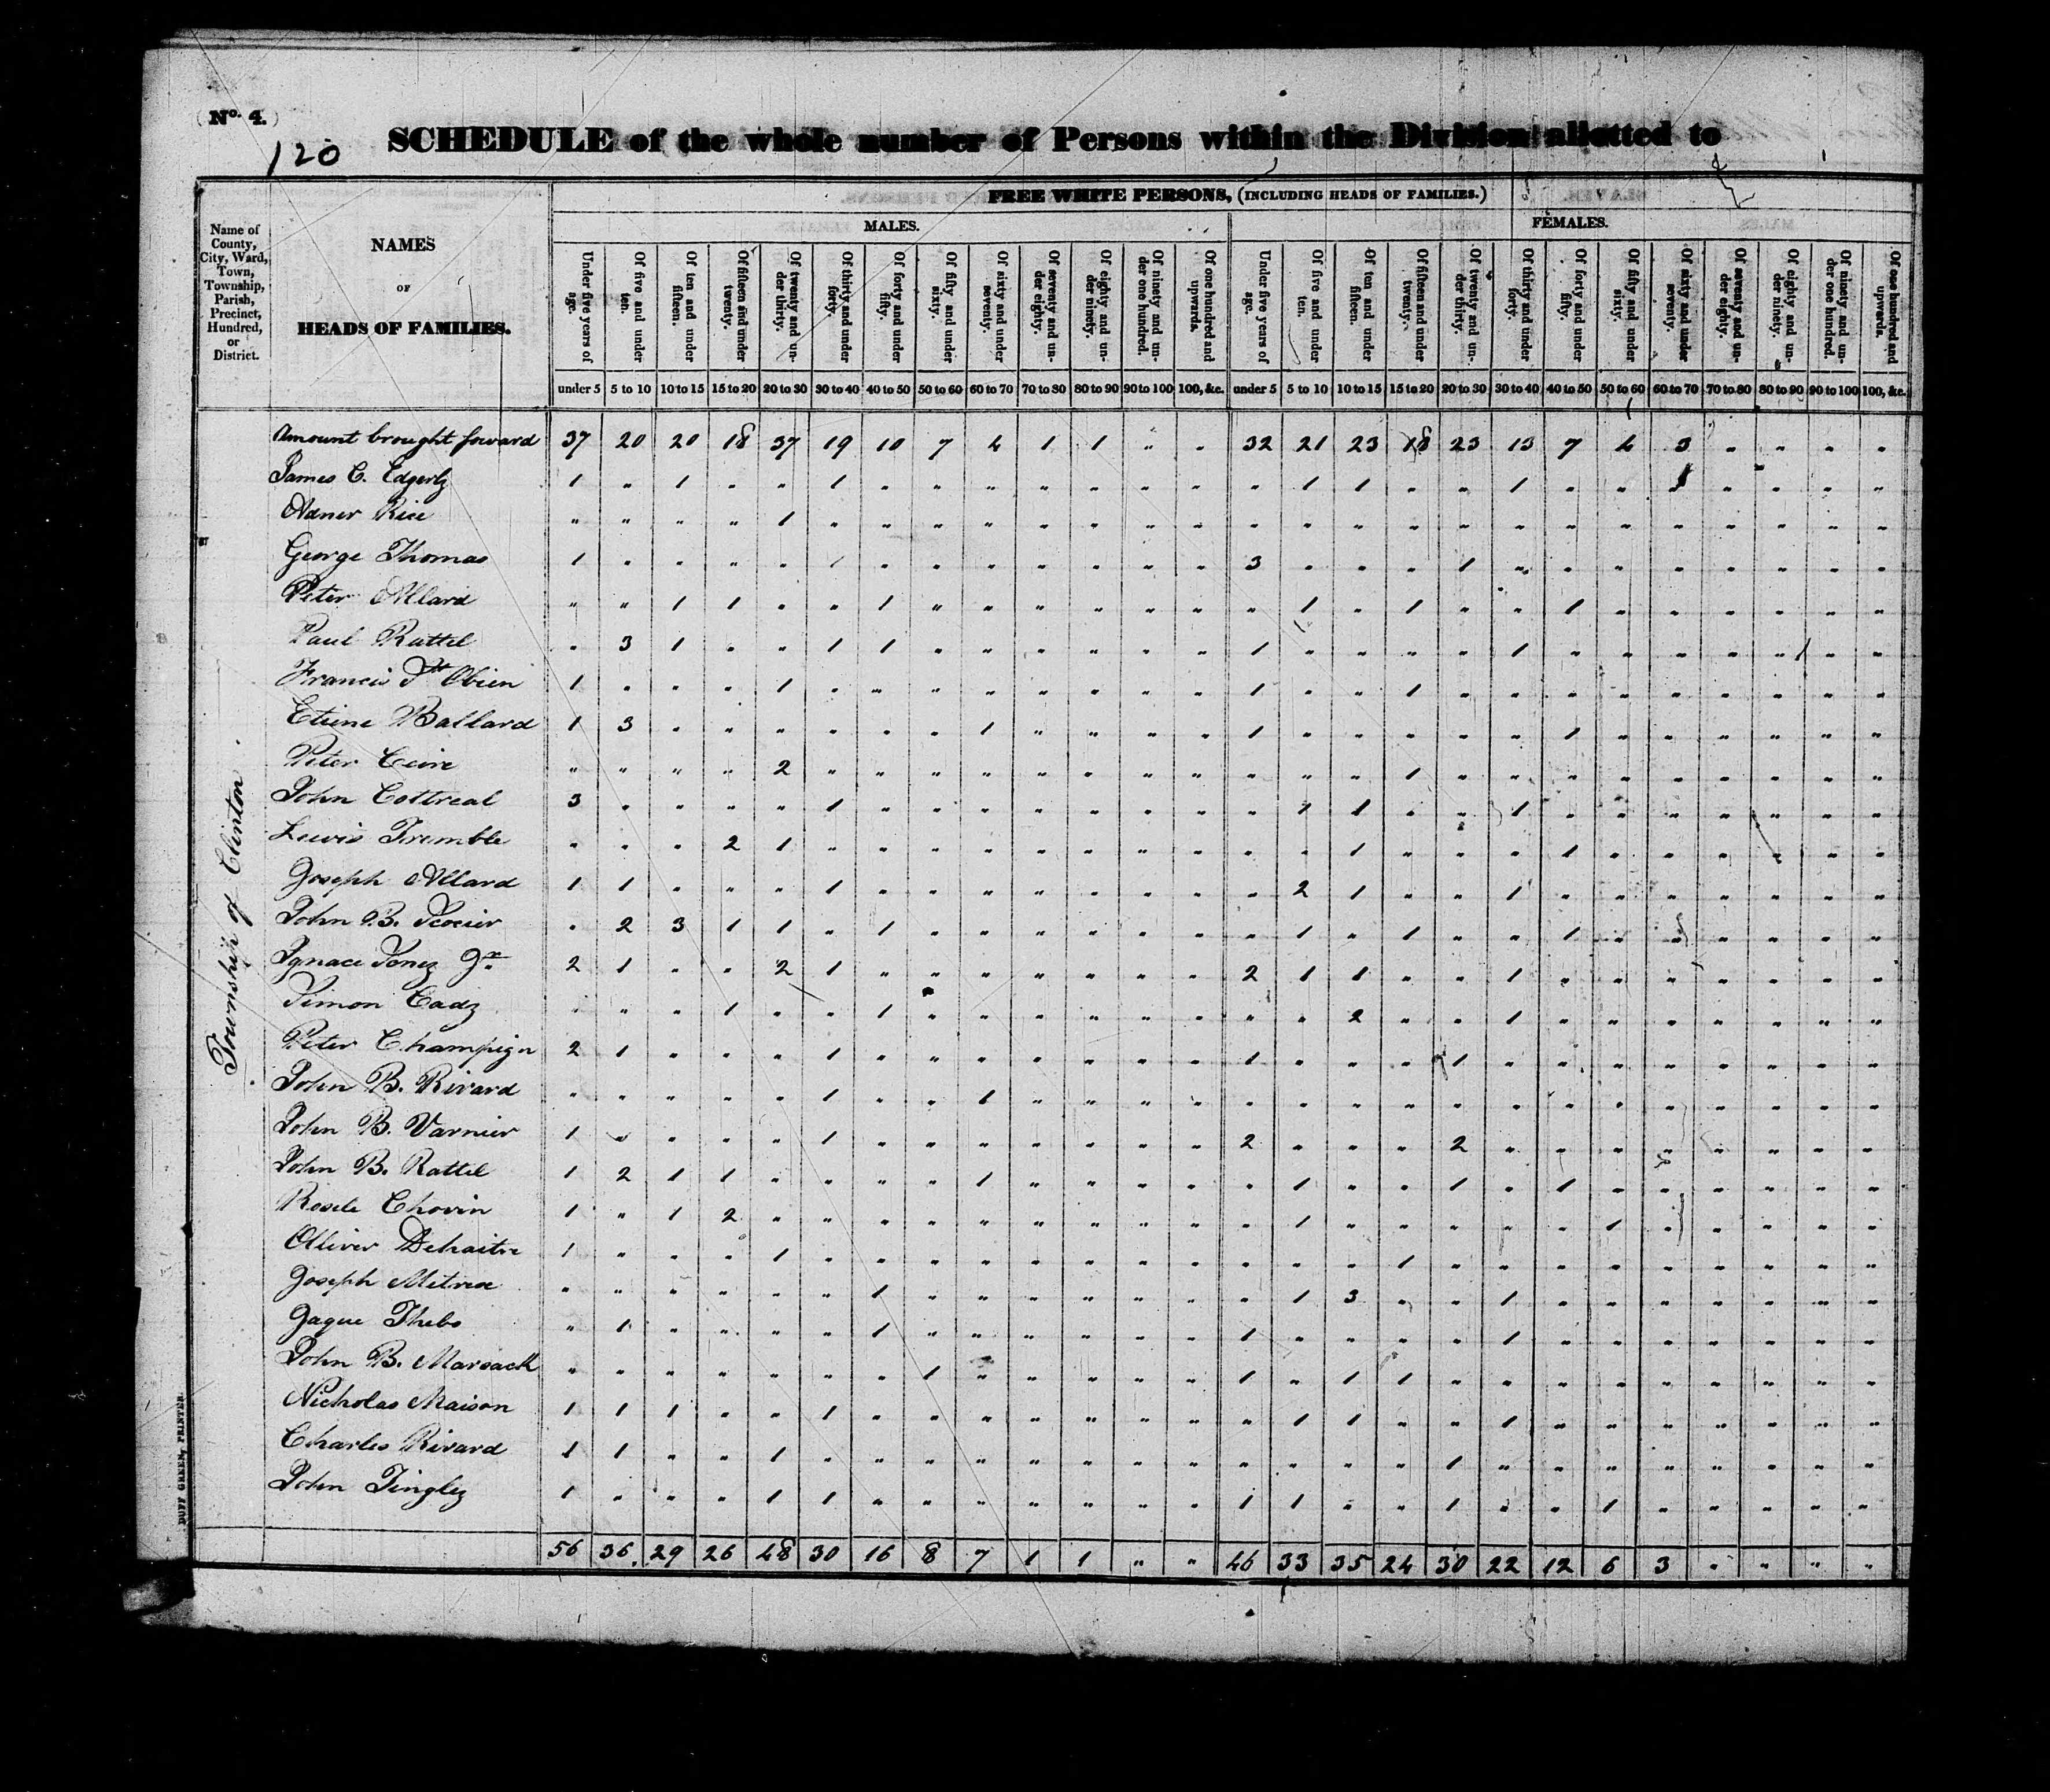 No. 4.
120
SCHEDULE of the whole number of Persons within the Division allotted to
FREE WHITE PERSONS, (INCLUDING HEADS OF FAMILIES.)
MALES. FEMALES.
Name of County, City, Ward, Town, Township, Parish, Precinct, Hundred, or District.
NAMES OF HEADS OF FAMILIES.
Under five years of age. Of five and under ten. Of ten and under fifteen. Of fifteen and under twenty. Of twenty and under thirty. Of thirty and under forty. Of forty and under fifty. Of fifty and under sixty. Of sixty and under seventy. Of seventy and under eighty. Of eighty and under ninety. Of ninety and under one hundred. Of one hundred and upwards. Under five years of age. Of five and under ten. Of ten and under fifteen. Of fifteen and under twenty. Of twenty and under thirty. Of thirty and under forty. Of forty and under fifty. Of fifty and under sixty. Of sixty and under seventy. Of seventy and under eighty. Of eighty and under ninety. Of ninety and under one hundred. Of one hundred and upwards.
under 5 5 to 10 10 to 15 15 to 20 20 to 30 30 to 40 40 to 50 50 to 60 60 to 70 70 to 80 80 to 90 90 to 100 100, &c. under 5 5 to 10 10 to 15 15 to 20 20 to 30 30 to 40 40 to 50 50 to 60 60 to 70 70 to 80 80 to 90 90 to 100 100, &c.
Township of Clinton
Amount brought forward 37 20 20 18 37 19 10 7 4 1 1 " " 32 21 23 18 23 13 7 4 3 " " " "
James C. Edgerly 1 " 1 " " 1 " " " " " " " " 1 1 " " 1 " " " " " "
Abner Rice " " " " 1 " " " " " " " " " " " " " " " " " " " " "
George Thomas 1 " " " " 1 " " " " " " " 3 " " " 1 " " " " " " " "
Peter Allard " " 1 1 " " 1 " " " " " " " 1 " 1 " " 1 " " " " " "
Paul Rattel " 3 1 " " 1 1 " " " " " " 1 " " " " 1 " " " " " " "
Francis St Obien 1 " " " 1 " " " " " " " " 1 " " 1 " " " " " " " " "
Etiene Ballard 1 3 " " " " " " 1 " " " " 1 " " " " " 1 " " " " " "
Peter " " " " 2 " " " " " " " " " " " 1 " " " " " " " " "
John Cottreal 3 " " " " 1 " " " " " " " " 1 1 " " 1 " " " " " " "
Lewis Tremble " " " 2 1 " " " " " " " " " " 1 " " " 1 " " " " " "
Joseph Allard 1 1 " " " 1 " " " " " " " " 2 1 " " 1 " " " " " " "
John B. " 2 3 1 1 " 1 " " " " " " " 1 " 1 " " 1 " " " " " "
Ignace Jr 2 1 " " 2 1 " " " " " " " 2 1 1 " " 1 " " " " " " "
Simon Cady " " " 1 " " 1 " " " " " " " " 2 " " 1 " " " " " " "
Peter Champign 2 1 " " " 1 " " " " " " " 1 " " " 1 " " " " " " " "
John B. Rivard " " " " " 1 " " 1 " " " " " " " " " " " " " " " " "
John B. Varnier 1 " " " " 1 " " " " " " " 2 " " " 2 " " " " " " " "
John B. Rattel 1 2 1 1 " " " " 1 " " " " " 1 " " 1 " 1 " " " " " "
Rosele Chovin 1 " 1 2 " " " " " " " " " " 1 " " " " " 1 " " " " "
Olliver Dehaitre 1 " " " 1 " " " " " " " " " " " 1 " " " " " " " " "
Joseph " " " " " " 1 " " " " " " " 1 3 " " 1 " " " " " " "
Jaque Thebo " 1 " " " " 1 " " " " " " 1 " " " " 1 " " " " " " "
John B. Marsack " " " " " " " 1 " " " " " 1 " 1 1 " " " " " " " " "
Nicholas Maison 1 1 1 " " 1 " " " " " " " " 1 1 " " 1 " " " " " " "
Charles Rivard 1 1 " " 1 " " " " " " " " " " " " 1 " " " " " " " "
John Tingley 1 " " " 1 1 " " " " " " " 1 1 " " 1 " " 1 " " " " "
56 36 29 26 48 30 16 8 7 1 1 " " 46 33 35 24 30 22 12 6 3 " " " "
DUFF GREEN, PRINTER.